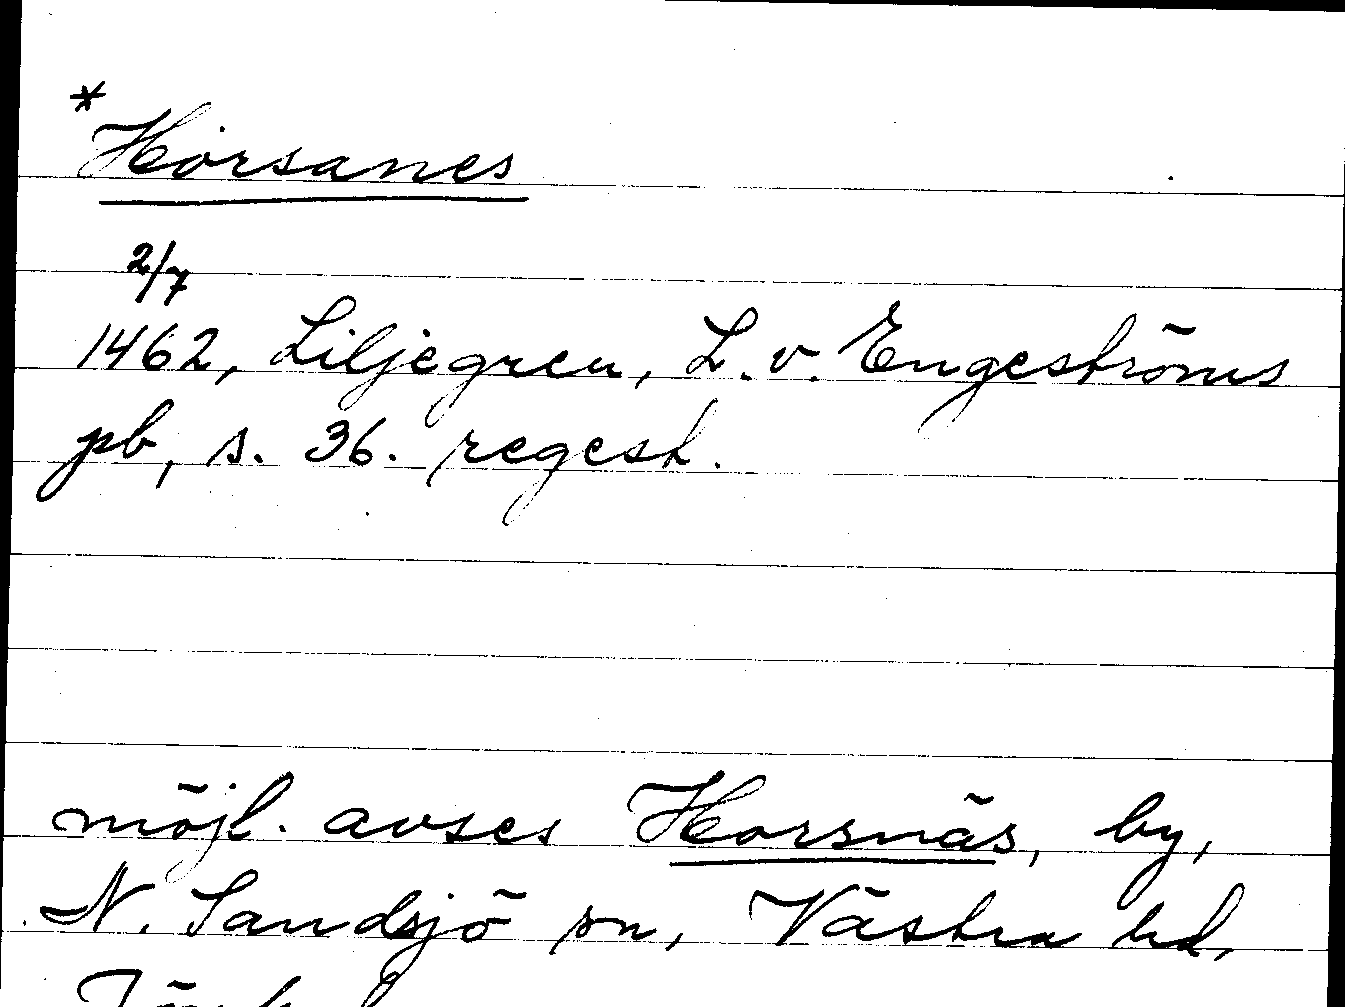 *
Horsanes
2/7
1462, Liljegren, L. v. Engeströms
pb, s. 36. regest.
möjl. avses Horsnäs, by,
N. Sandsjö sn, Västra hd,